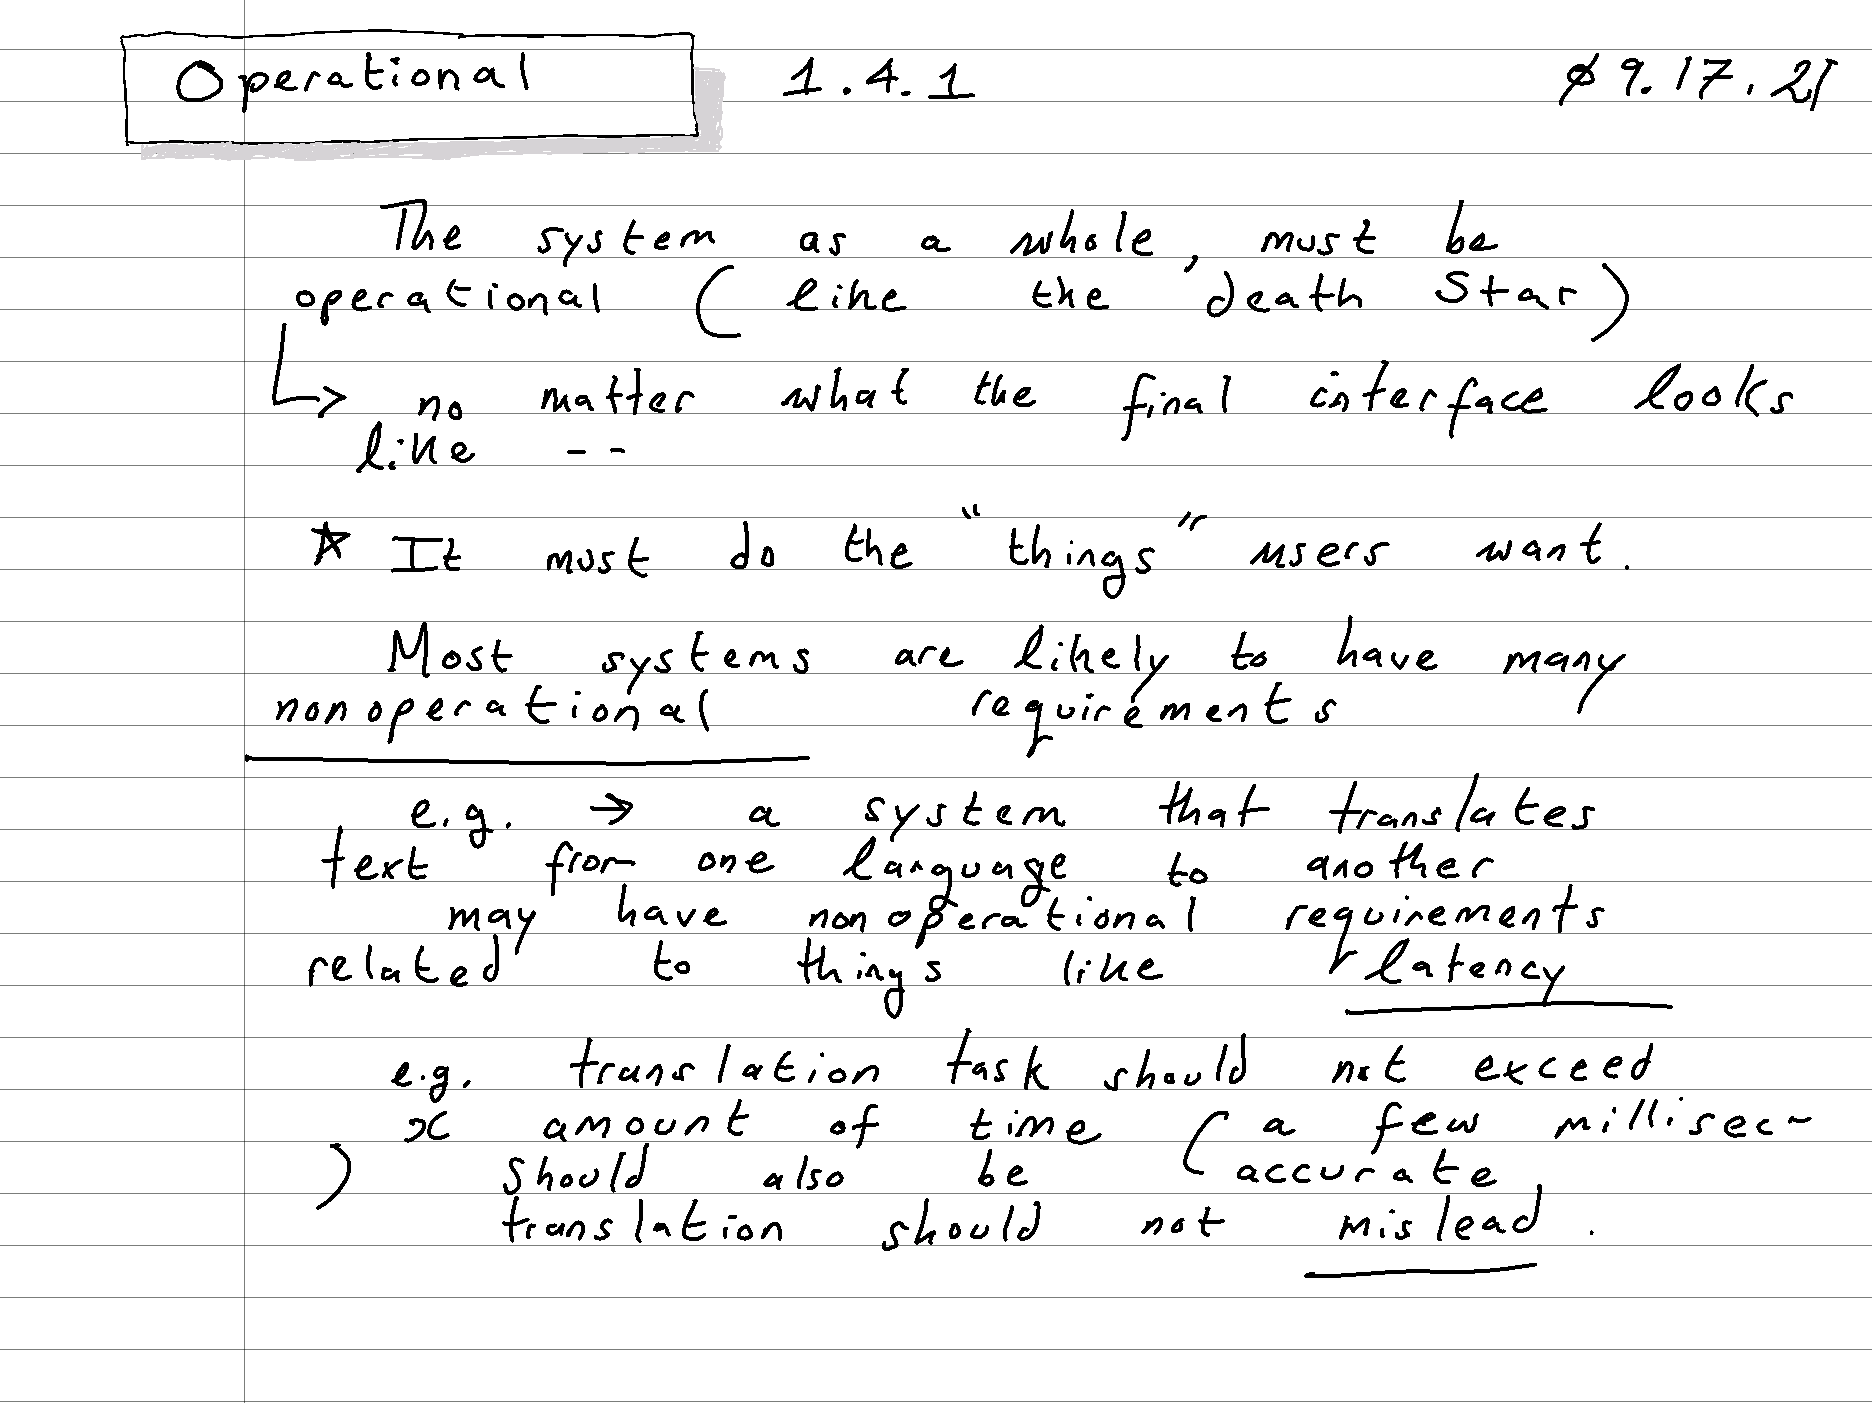 Operational 1.4.1 09.17.21
The system as a whole, must be
operational (like the death Star)
↳ no matter what the final interface looks
like --
☆ It must do the "things" users want.
Most systems are likely to have many
nonoperational requirements
e.g. → a system that translates
text from one language to another
may have nonoperational requirements
related to things like latency
e.g. translation task should not exceed
x amount of time (a few millisec~
) should also be (accurate
translation should not mislead.